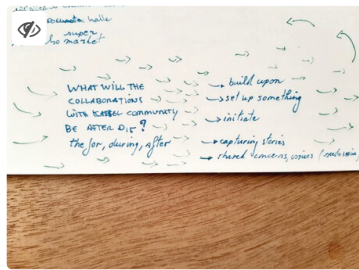 hale
super
market
WHAT WILL THE
COLLABORATIONS
WITH KASSEL COMMUNITY
BE AFTER D15?
the for, during, after
→ build upon
→ set up something
→ initiate
→ capturing stories
→ shared concerns,